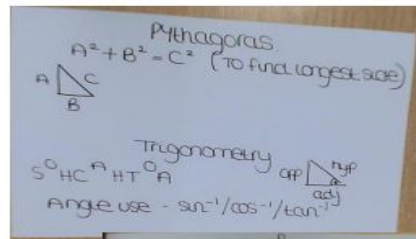 Pythagoras.
A² + B² = C² (To find longest side)
A C
B
Trigonometry
S⁰HCᴬHT⁰A
opp hyp
adj
Angle use - sin⁻¹/cos⁻¹/tan⁻¹